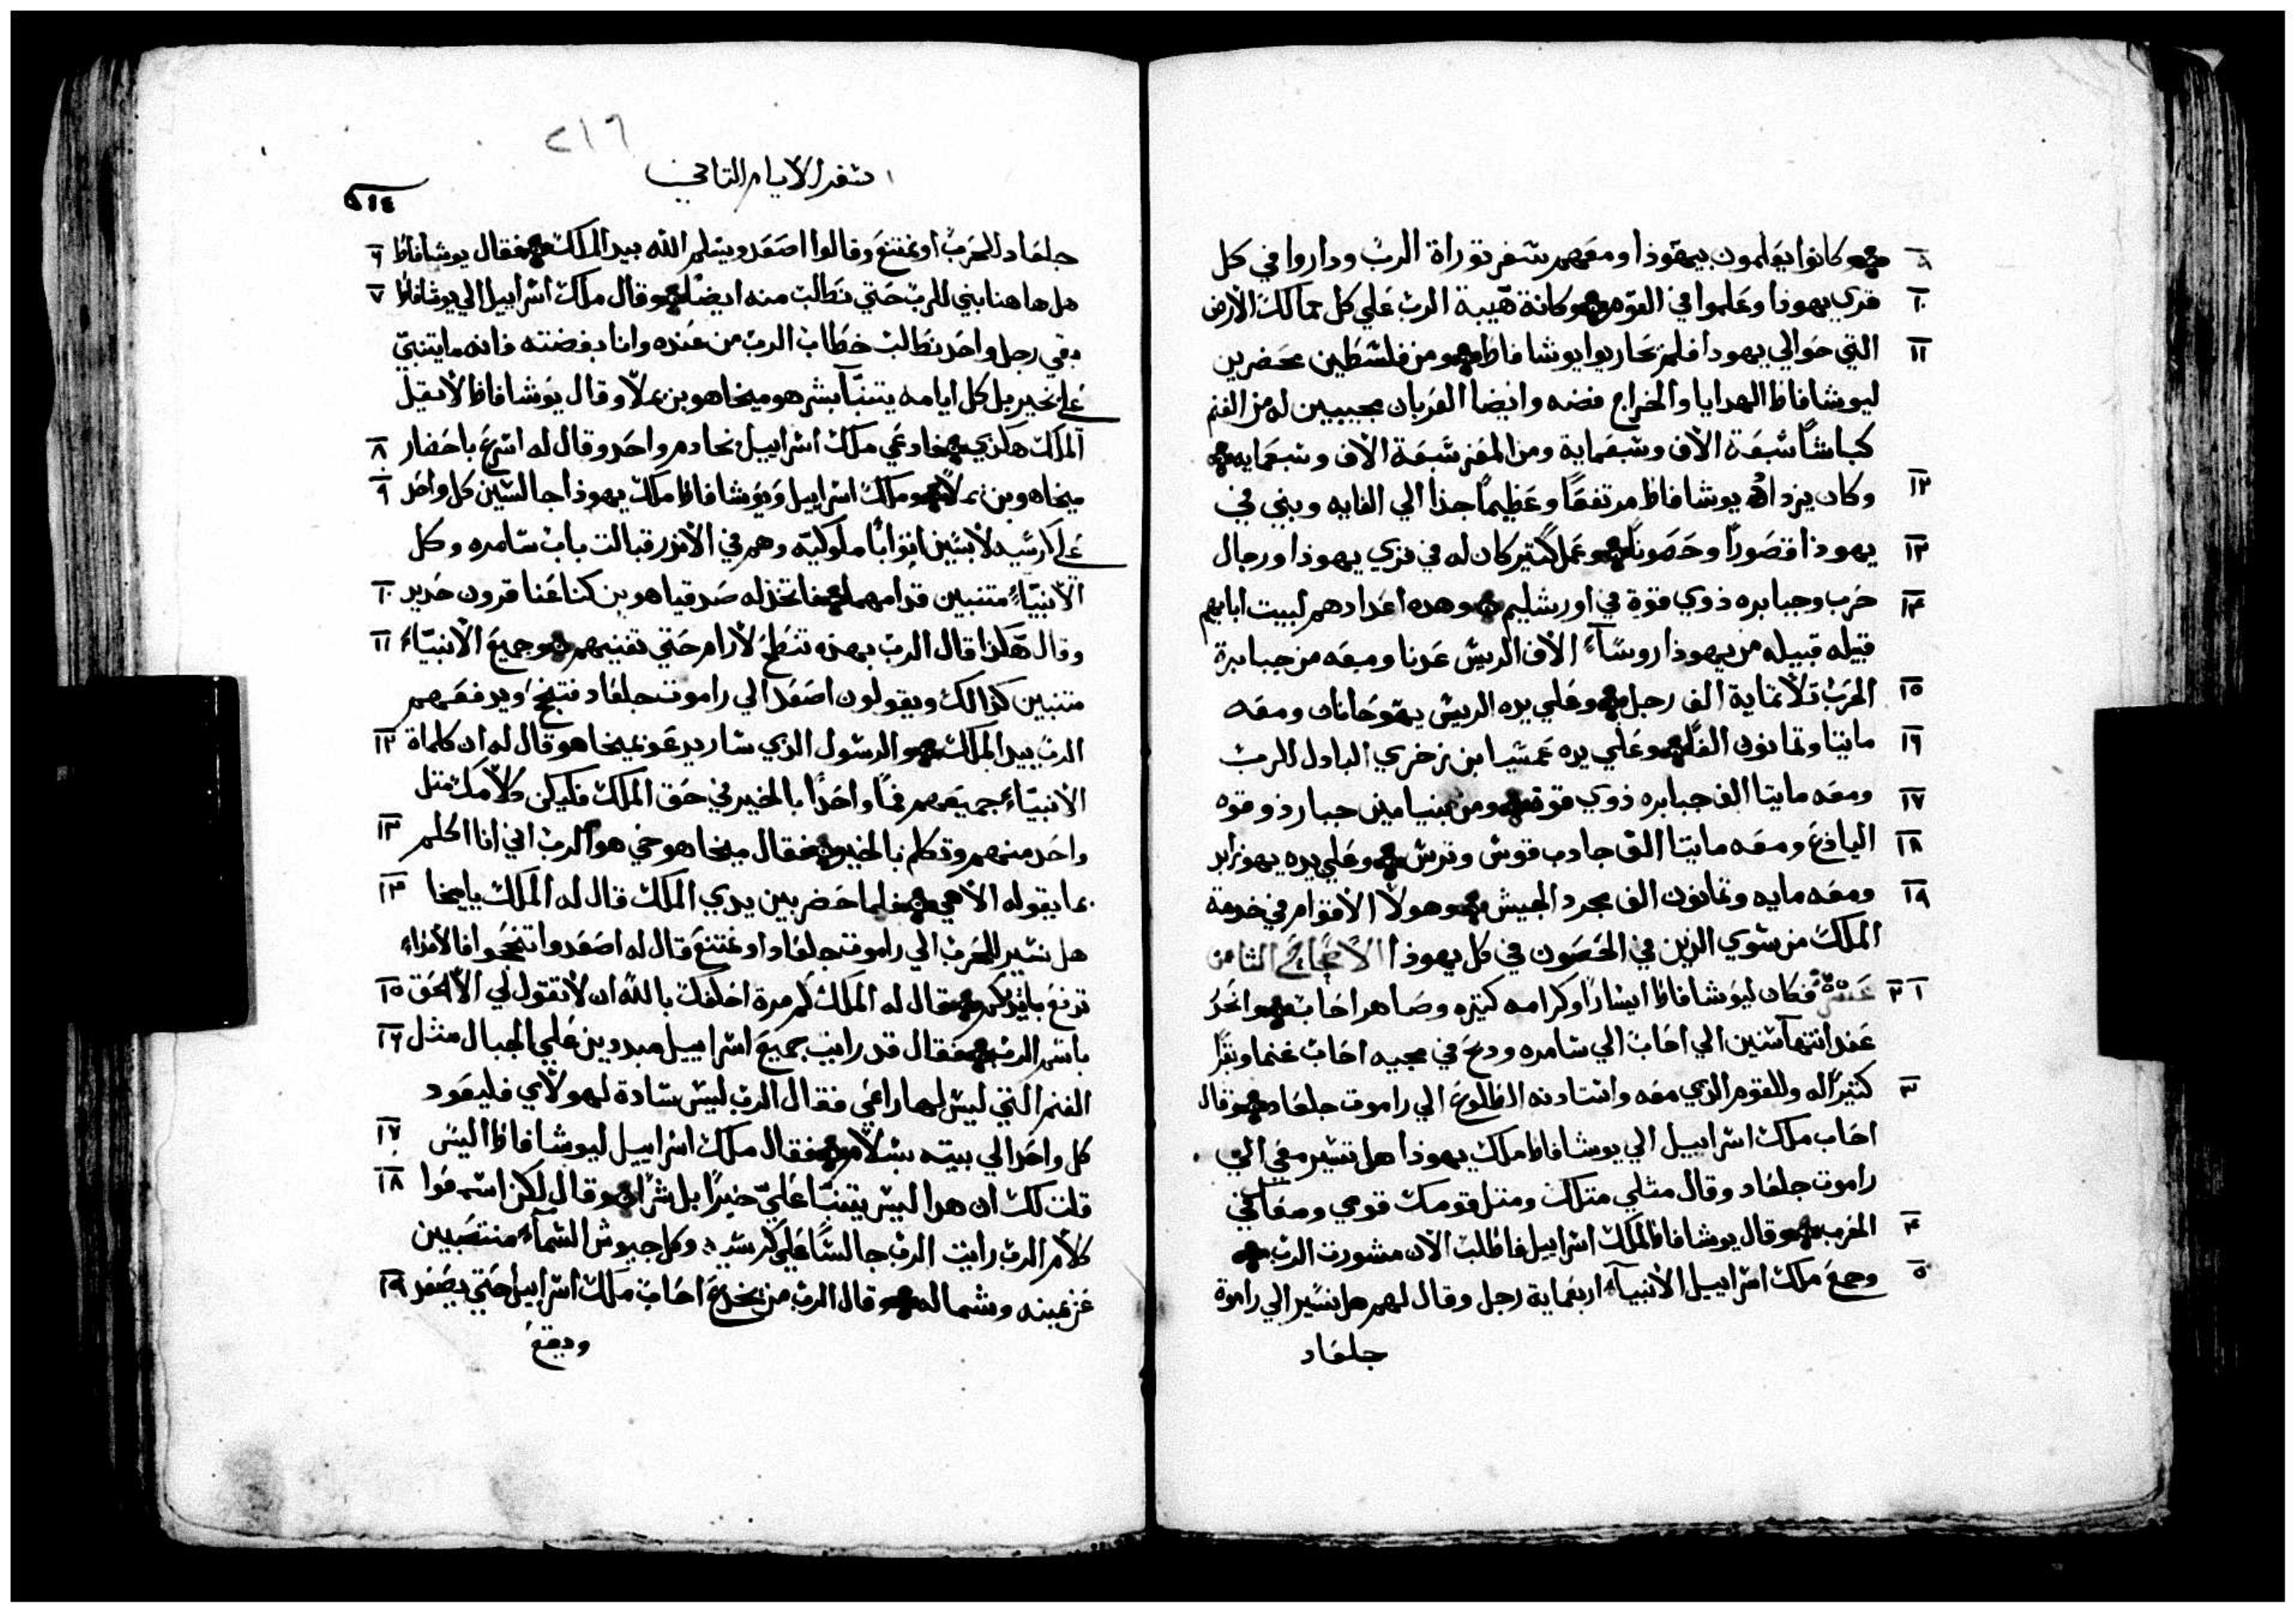 ٩ وكانوا يعلمون بيهوذا ومعهم سفر توراة الرب وداروا في كل
١٠ قري يهوذا وعلموا في القوم وكانة هيبة الرب علي كل ممالك الأرض
١١ التي حوالي يهودا فلم يحاربوا يوشافاط ومن فلسطين محضرين
ليوشافاط الهدايا والخراج فضه وايضا العربان مجيبين له من الغنم
كباشا سبعة الاف وسبعماية ومن المعز سبعة الاف وسبعمايه
١٢ وكان يزداد يوشافاط مرتفعا وعظيما جدا الي الغايه وبني في
١٣ يهوذا قصورا وحصونا وعمل كثير كان له في قري يهوذا ورجال
١٤ حرب وجبابره ذوي قوة في اورشليم وهده اعدادهم لبيت ابايهم
قبيله قبيله من يهوذا روساء الاف الريس عدنا ومعه من جبابرة
١٥ الحرب تلاتماية الف رجل وعلي يده الريس يهوحانان ومعه
١٦ مايتا وتمانون الفا وعلي يده عمسيا ابن زخري البادل للرب
١٧ ومعه مايتا الف جبابره ذوي قوة ومن بنيامين جبار ذو قوه
١٨ اليادع ومعه مايتا الف جادب قوس وترس وعلي يده يهوزابد
١٩ ومعه مايه وتمانون الف مجرد الجيش وهولا الأقوام في خدمة
الملك من سوي الذين في الحصون في كل يهوذا الاصحاح الثامن
١ ٢ عشر فكان ليوشافاط ايسارا وكرامه كتيره وصاهر احاب وانحدر
عند انتها سنين الي احاب الي سامره ودبح في مجيه احاب غنما وبقرا
٣ كتيرا له وللقوم الذي معه واستادنه الطلوع الي راموت جلعاد وقال
احاب ملك اسراييل الي يوشافاط ملك يهوذا هل تسير معي الي
راموت جلعاد وقال مثلي متلك ومتل قومك قومي ومعك في
٤ الحرب وقال يوشافاط لملك اسراييل فاطلب الان مشورت الرب
٥ وجمع ملك اسراييل الأنبياء اربعماية رجل وقال لهم هل نسير الي راموة
جلعاد
٢١٦
سفر الايام التاني
٥١٤
جلعاد للحرب او نمتنع وقالوا اصعد ويسلم الله بيد الملك فقال يوشافاط ٦
هل هاهنا بني للرب حتي نطالب منه ايضا وقال ملك اسراييل الي يوشافاط ٧
بقي رجل واحد نطالب خطاب الرب من عنده وانا بغضته فانه ما يتنبي
علي بخير بل كل ايامه يتنبا بشر هو ميخاهو بن يملا وقال يوشافاط لا تقل
الملك هكذي فادعي ملك اسراييل بخادم واحد وقال له اسرع باحضار ٨
ميخاهو بن يملا وملك اسراييل ويوشافاط ملك يهوذا جالسين كل واحد ٩
علي كرسيه لابسين اثوابا ملوكيه وهم في الاندر قبالت باب سامره وكل
الأنبياء متنبين قدامهما فاتخذ له صدقياهو بن كناعنا قرون حديد ١٠
وقال هكذا قال الرب بهذه تنطح لارام حتي تفنيهم وجميع الأنبياء ١١
متنبين كذالك ويقولون اصعد الي راموت جلعاد فتنجح ويدفعهم
الرب بيد الملك والرسول الذي سار يدعو بميخاهو قال له ان كلماة ١٢
الأنبياء جميعهم فما واحدا بالخير في حق الملك فليكن كلامك متل
واحد منهم وتكلم بالخير فقال ميخاهو حي هو الرب اني انا اتكلم ١٣
بما يقوله الاهي فلما حضر بين يدي الملك قال له الملك يا ميخا ١٤
هل نسير للحرب الي راموت جلعاد او نمتنع قال له اصعدوا تنجحوا فالأعداء
تدفع بايديكم فقال له الملك كم مرة احلفك بالله ان لا تقول لي الا الحق ١٥
باسم الرب فقال قد رايت جميع اسراييل مبددين علي الجبال مثل ١٦
الغنم التي ليس لها راعي فقال الرب ليس سادة لهولاي فليعود
كل واحد الي بيته بسلام فقال ملك اسراييل ليوشافاط اليس ١٧
قلت لك ان هدا ليس يتنبا علي خيرا بل شرا وقال لكن اسمعوا ١٨
كلام الرب رايت الرب جالسا علي كرسيه وكل جيوش السماء منتصبين
عن يمينه وشماله وقال الرب من يخدع احاب ملك اسراييل حتي يصعد ١٩
ويقع